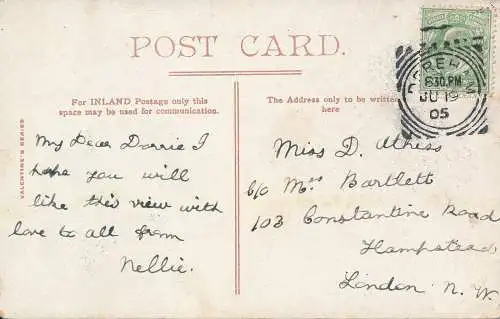 POST CARD.
For INLAND Postage only this
space may be used for communication.
The Address only to be written
here
VALENTINE'S SERIES
DEREHAM
6.30.PM
JU 19
05
My Dear Dorrie I
hope you will
like this view with
love to all from
Nellie.
Miss D. Athiss
c/o Mrs Bartlett
103 Constantine Road
Hampstead
London N. W.